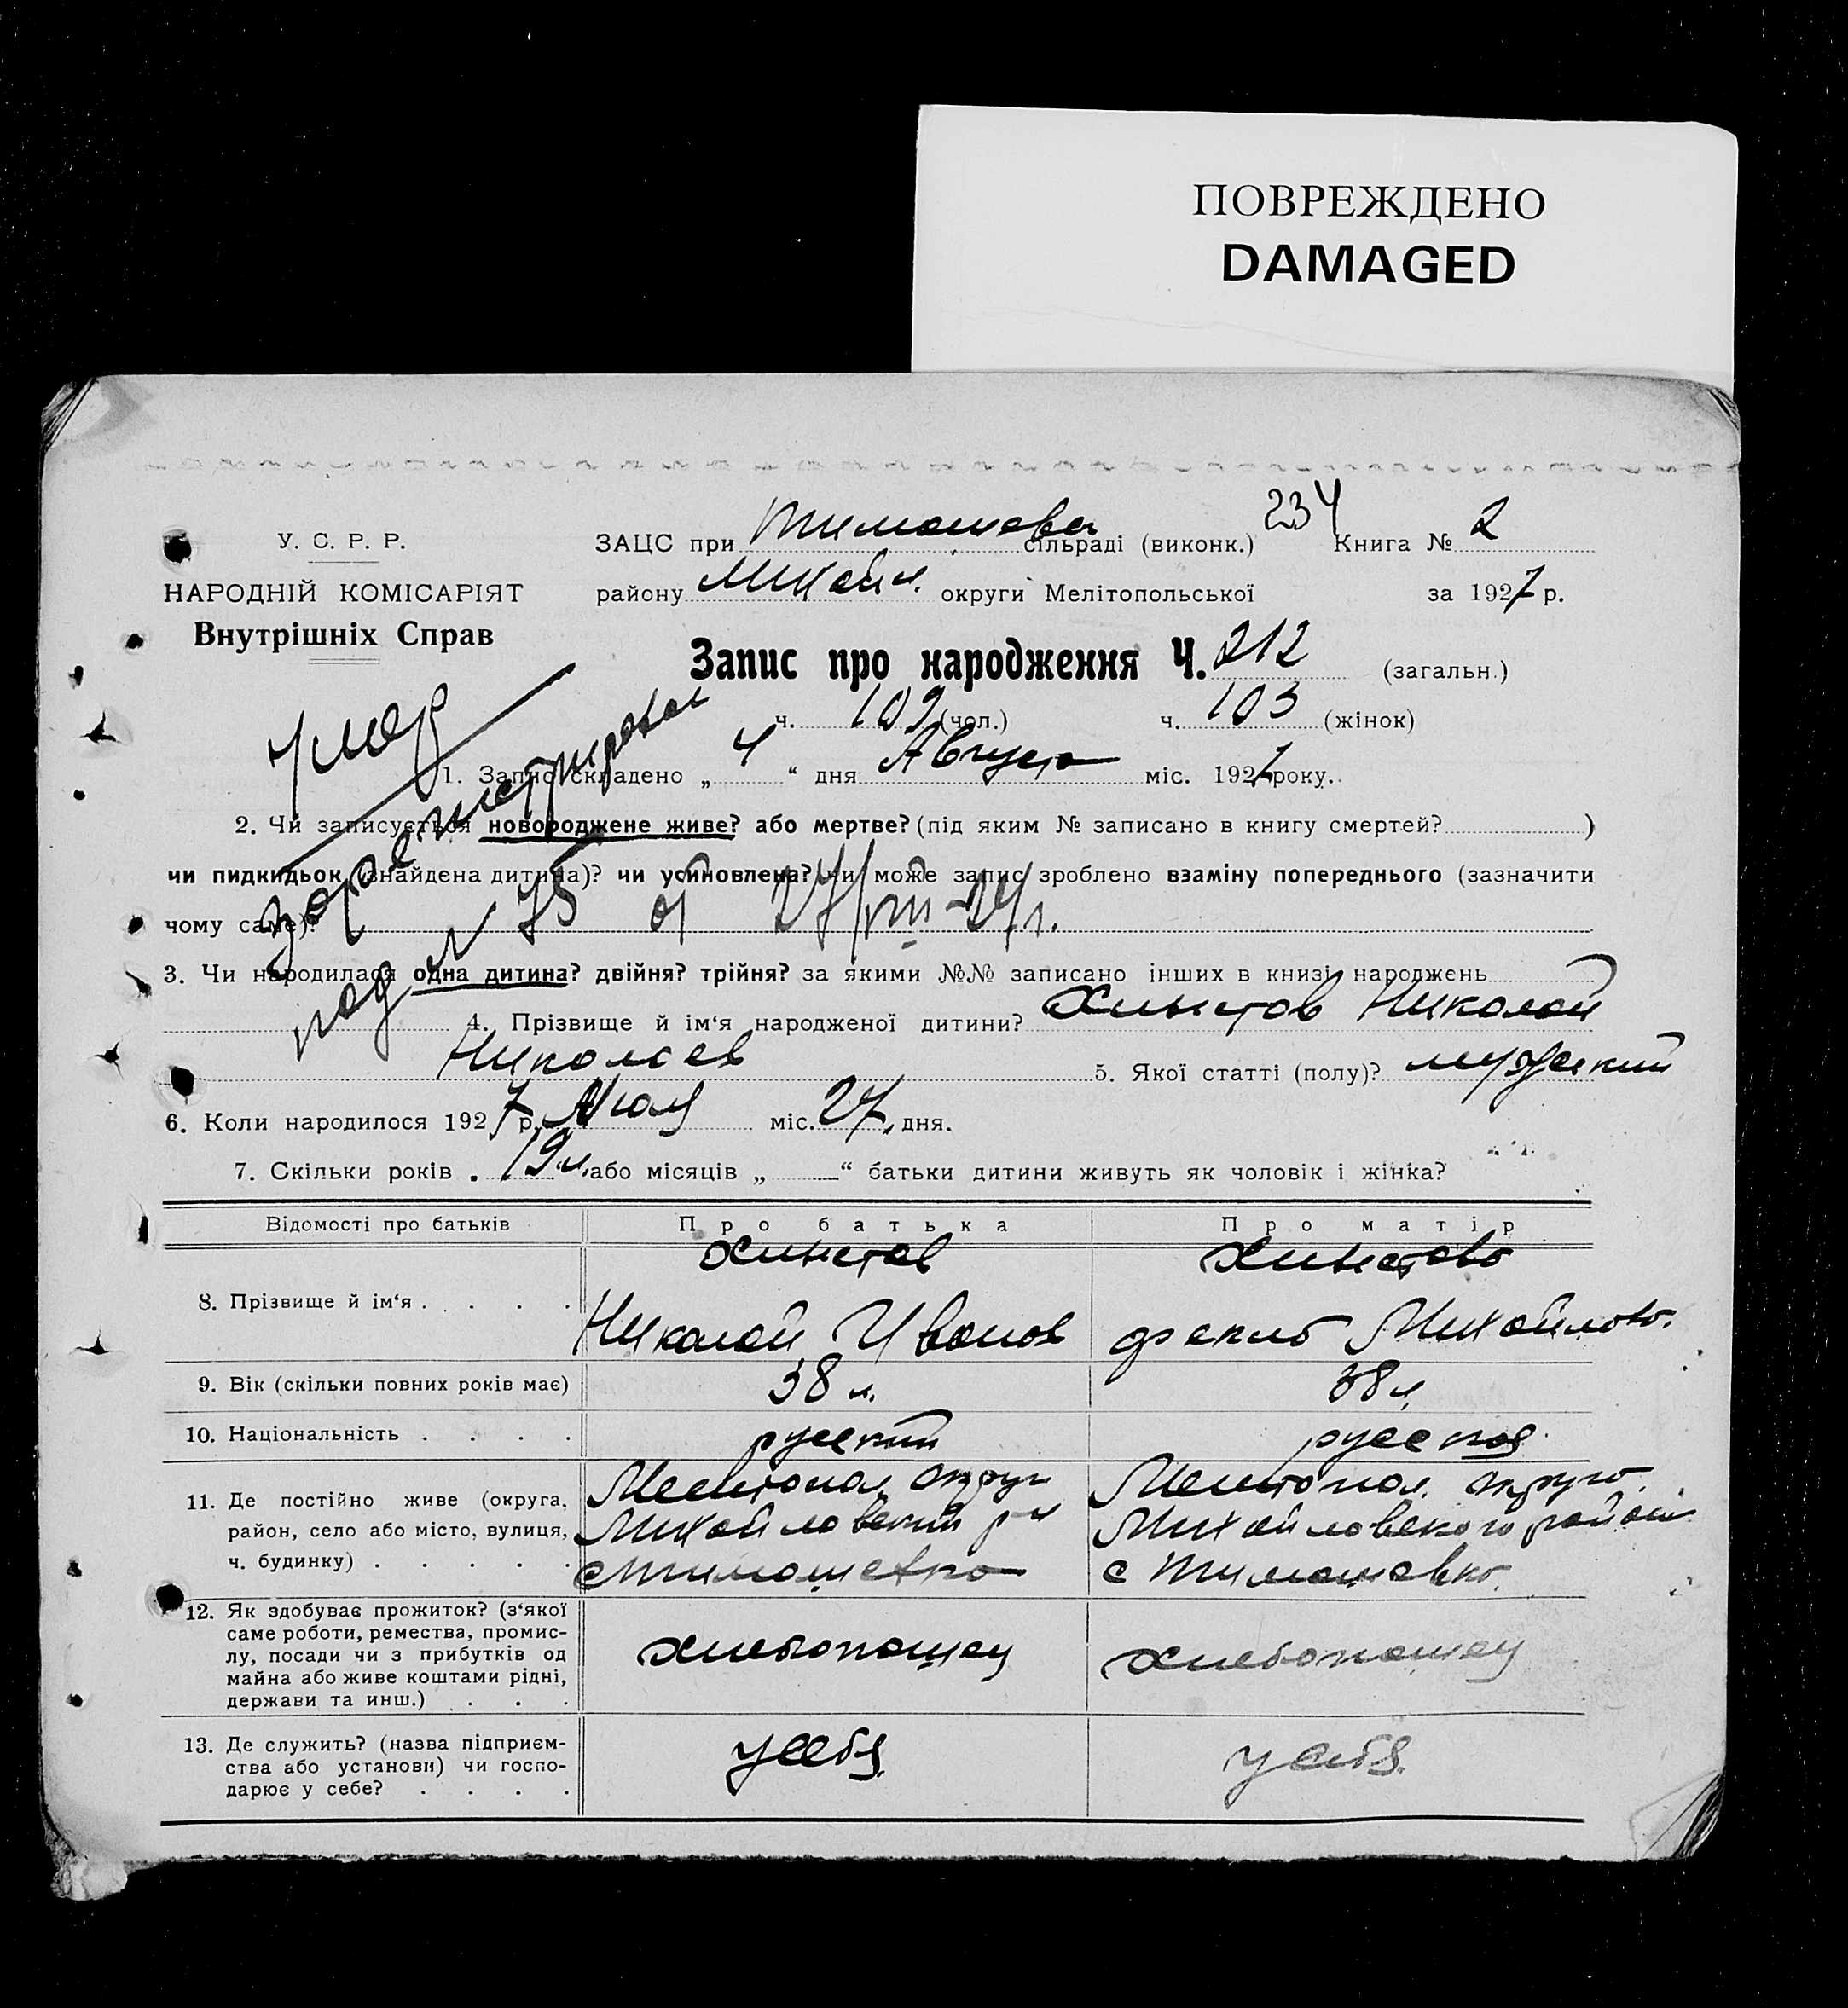 ПОВРЕЖДЕНО
DAMAGED
У. С. Р. Р.
НАРОДНІЙ КОМІСАРІЯТ
Внутрішніх Справ
ЗАЦС при Тимошевск сільраді (виконк.) 234 Книга № 2
району Михайл. округи Мелітопольської за 1927 р.
Запис про народження Ч. 212 (загальн.)
ч. 109 (чол.) ч. 103 (жінок)
умер
зарегистрирован
под № 75 от 27/VIII-27 г.
1. Запис складено „ 4 “ дня Августа міс. 1927 року.
2. Чи записується новороджене живе? або мертве? (під яким № записано в книгу смертей? )
чи пидкидьок (знайдена дитина)? чи усиновлена? чи може запис зроблено взаміну попереднього (зазначити
чому саме)?
3. Чи народилася одна дитина? двійня? трійня? за якими №№ записано інших в книзі народжень
4. Прізвище й ім‘я народженої дитини? Николай
Николаев 5. Якої статті (полу)? мужский
6. Коли народилося 1927 р. Июля міс. 27 дня.
7. Скільки років „ 19 л. або місяців „ “ батьки дитини живуть як чоловік і жінка?
Відомості про батьків Про батька Про матір
8. Прізвище й ім‘я . . . .
Николай Иванов Фекла Михайлова.
9. Вік (скільки повних років має) 38 л. 38 л.
10. Національність . . . . русский русская
11. Де постійно живе (округа, Мелитопол. округ Мелитопол. округа
район, село або місто, вулиця, Михайловский р-н Михайловского района
ч. будинку) . . . . . с Тимошевка с Тимошевка
12. Як здобуває прожиток? (з‘якої
саме роботи, ремества, промис-
лу, посади чи з прибутків од хлебопашец хлебопашец
майна або живе коштами рідні,
держави та инш.) . . .
13. Де служить? (назва підприєм-
ства або установи) чи госпо- у себя. у себя.
дарює у себе? . . . .